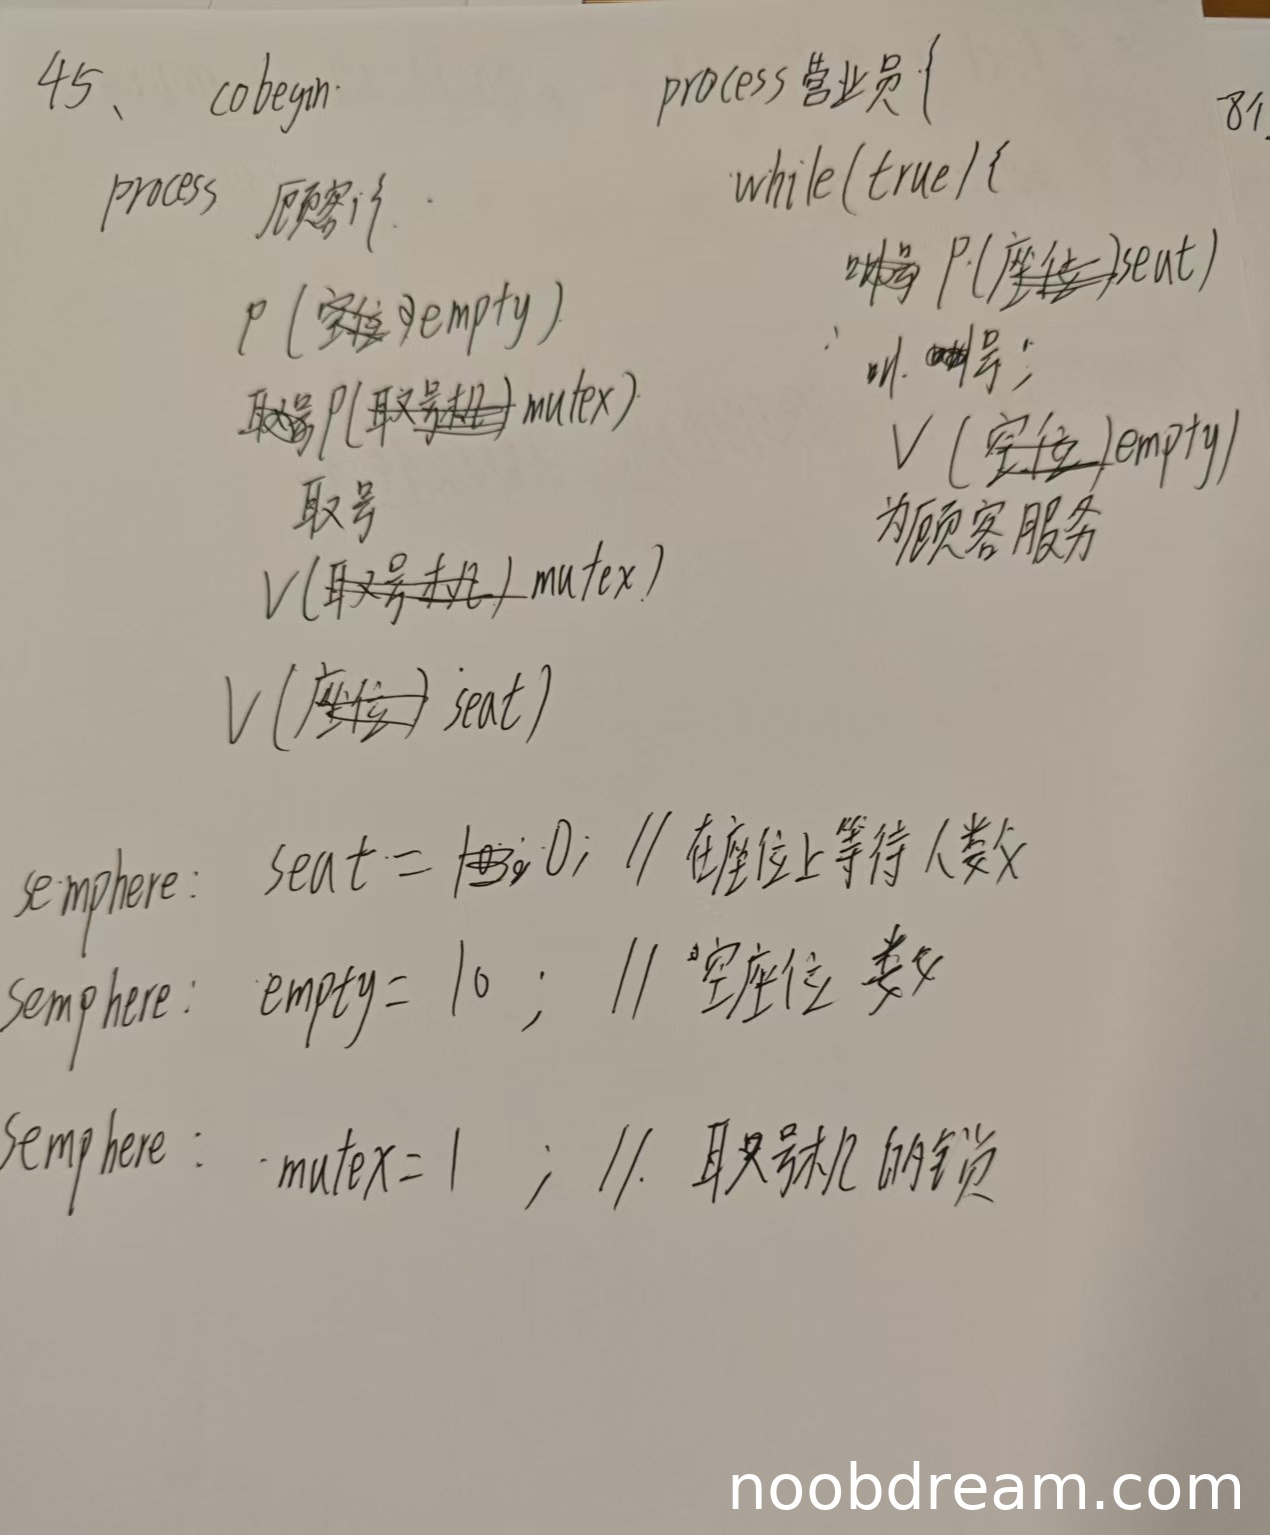 45、 cobegin
process 顾客i{
P(empty)
P(mutex)
取号
V(mutex)
V(seat)
process 营业员{
while(true){
P(seat)
叫号;
V(empty)
为顾客服务
semphere: seat = 0; // 在座位上等待人数
semphere: empty = 10 ; // 空座位数
semphere: mutex = 1 ; // 取号机的锁
noobdream.com